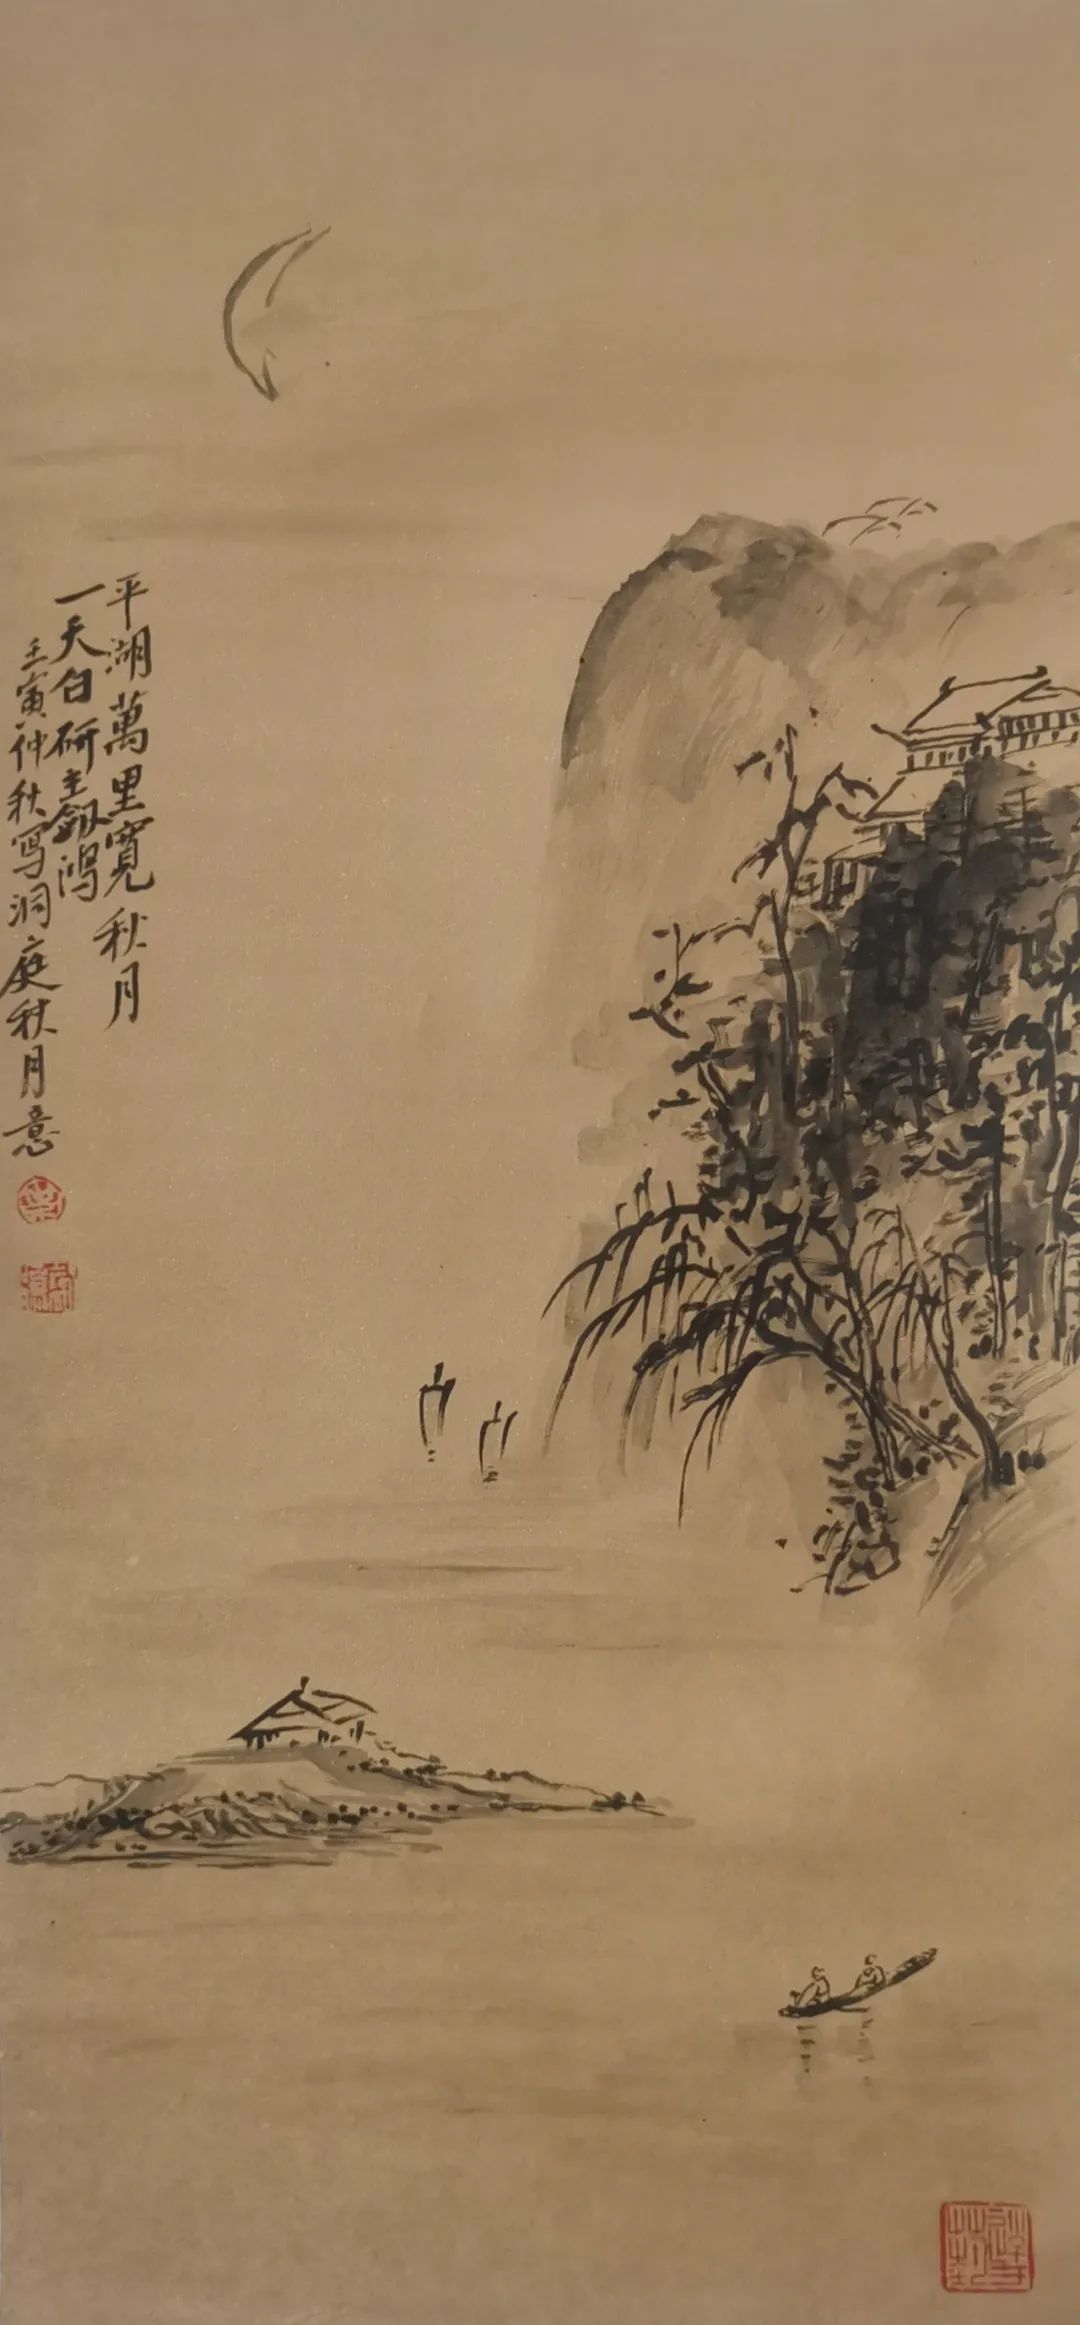 平湖萬里寬秋月
一天白研主劔鸿
壬寅仲秋写洞庭秋月意